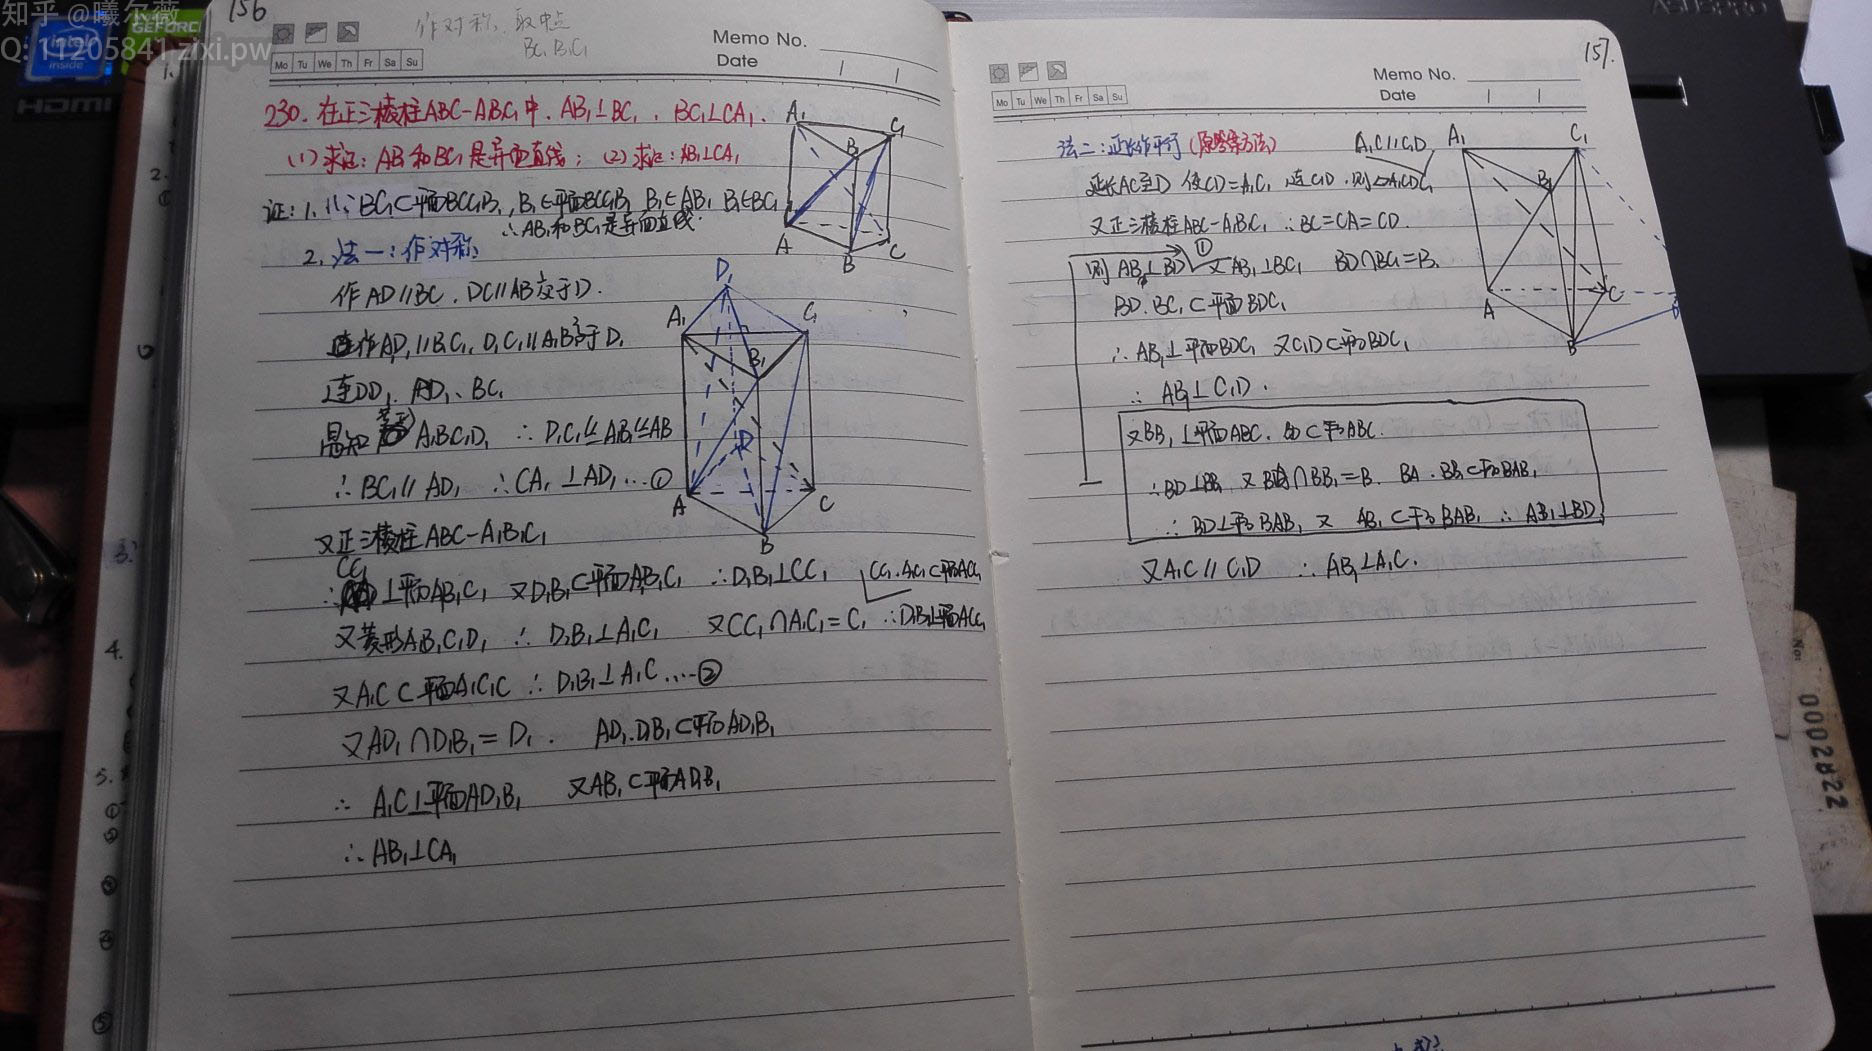 知乎 @曦尔薇
Q: 11205841 zixi.pw
intel inside
GEFORCE
HDMI
ASUSPRO
156
作对称, 取中点
BC₁ B₁C₁
Memo No.
Date
Mo Tu We Th Fr Sa Su
230. 在正三棱柱ABC-A₁B₁C₁中, AB₁⊥BC₁, BC₁⊥CA₁.
(1) 求证: AB₁和BC₁是异面直线; (2) 求证: AB₁⊥CA₁
证: 1. ∵BC₁⊂平面BCC₁B₁, B₁∈平面BCC₁B₁ B₁∈AB₁ B₁∉BC₁
∴AB₁和BC₁是异面直线.
2. 法一: 作对称.
作AD//BC. DC//AB交于D.
作A₁D₁//B₁C₁. D₁C₁//A₁B₁交于D₁
连DD₁. AD₁、BC₁
易知菱形A₁B₁C₁D₁ ∴D₁C₁ A₁B₁ AB
∴BC₁//AD₁ ∴CA₁⊥AD₁...①
又正三棱柱ABC-A₁B₁C₁
∴CC₁⊥平面A₁B₁C₁ 又D₁B₁⊂平面A₁B₁C₁ ∴D₁B₁⊥CC₁ CC₁. A₁C₁⊂平面ACC₁
又菱形A₁B₁C₁D₁ ∴D₁B₁⊥A₁C₁ 又CC₁∩A₁C₁=C₁ ∴D₁B₁⊥平面ACC₁
又A₁C⊂平面A₁C₁C ∴D₁B₁⊥A₁C....②
又AD₁∩D₁B₁=D₁. AD₁. D₁B₁⊂平面AD₁B₁
∴A₁C⊥平面AD₁B₁ 又AB₁⊂平面AD₁B₁
∴AB₁⊥CA₁
A₁ C₁ B₁ A B C
D₁ A₁ C₁ B₁ D A C B
157.
Memo No.
Date
Mo Tu We Th Fr Sa Su
法二: 延长作平行 (原答案方法)
A₁C//C₁D
延长AC至D 使CD=A₁C₁ 连C₁D. 则▱A₁CDC₁
又正三棱柱ABC-A₁B₁C₁ ∴BC=CA=CD.
则AB₁⊥BD ① 又AB₁⊥BC₁ BD∩BC₁=B.
BD. BC₁⊂平面BDC₁
∴AB₁⊥平面BDC₁ 又C₁D⊂平面BDC₁
∴AB₁⊥C₁D.
又BB₁⊥平面ABC. BD⊂平面ABC.
∴BD⊥BB₁ 又BA∩BB₁=B. BA. BB₁⊂平面BAB₁
∴BD⊥平面BAB₁ 又AB₁⊂平面BAB₁ ∴AB₁⊥BD
又A₁C//C₁D ∴AB₁⊥A₁C.
A₁ C₁ B₁ A C B
No:
0002822